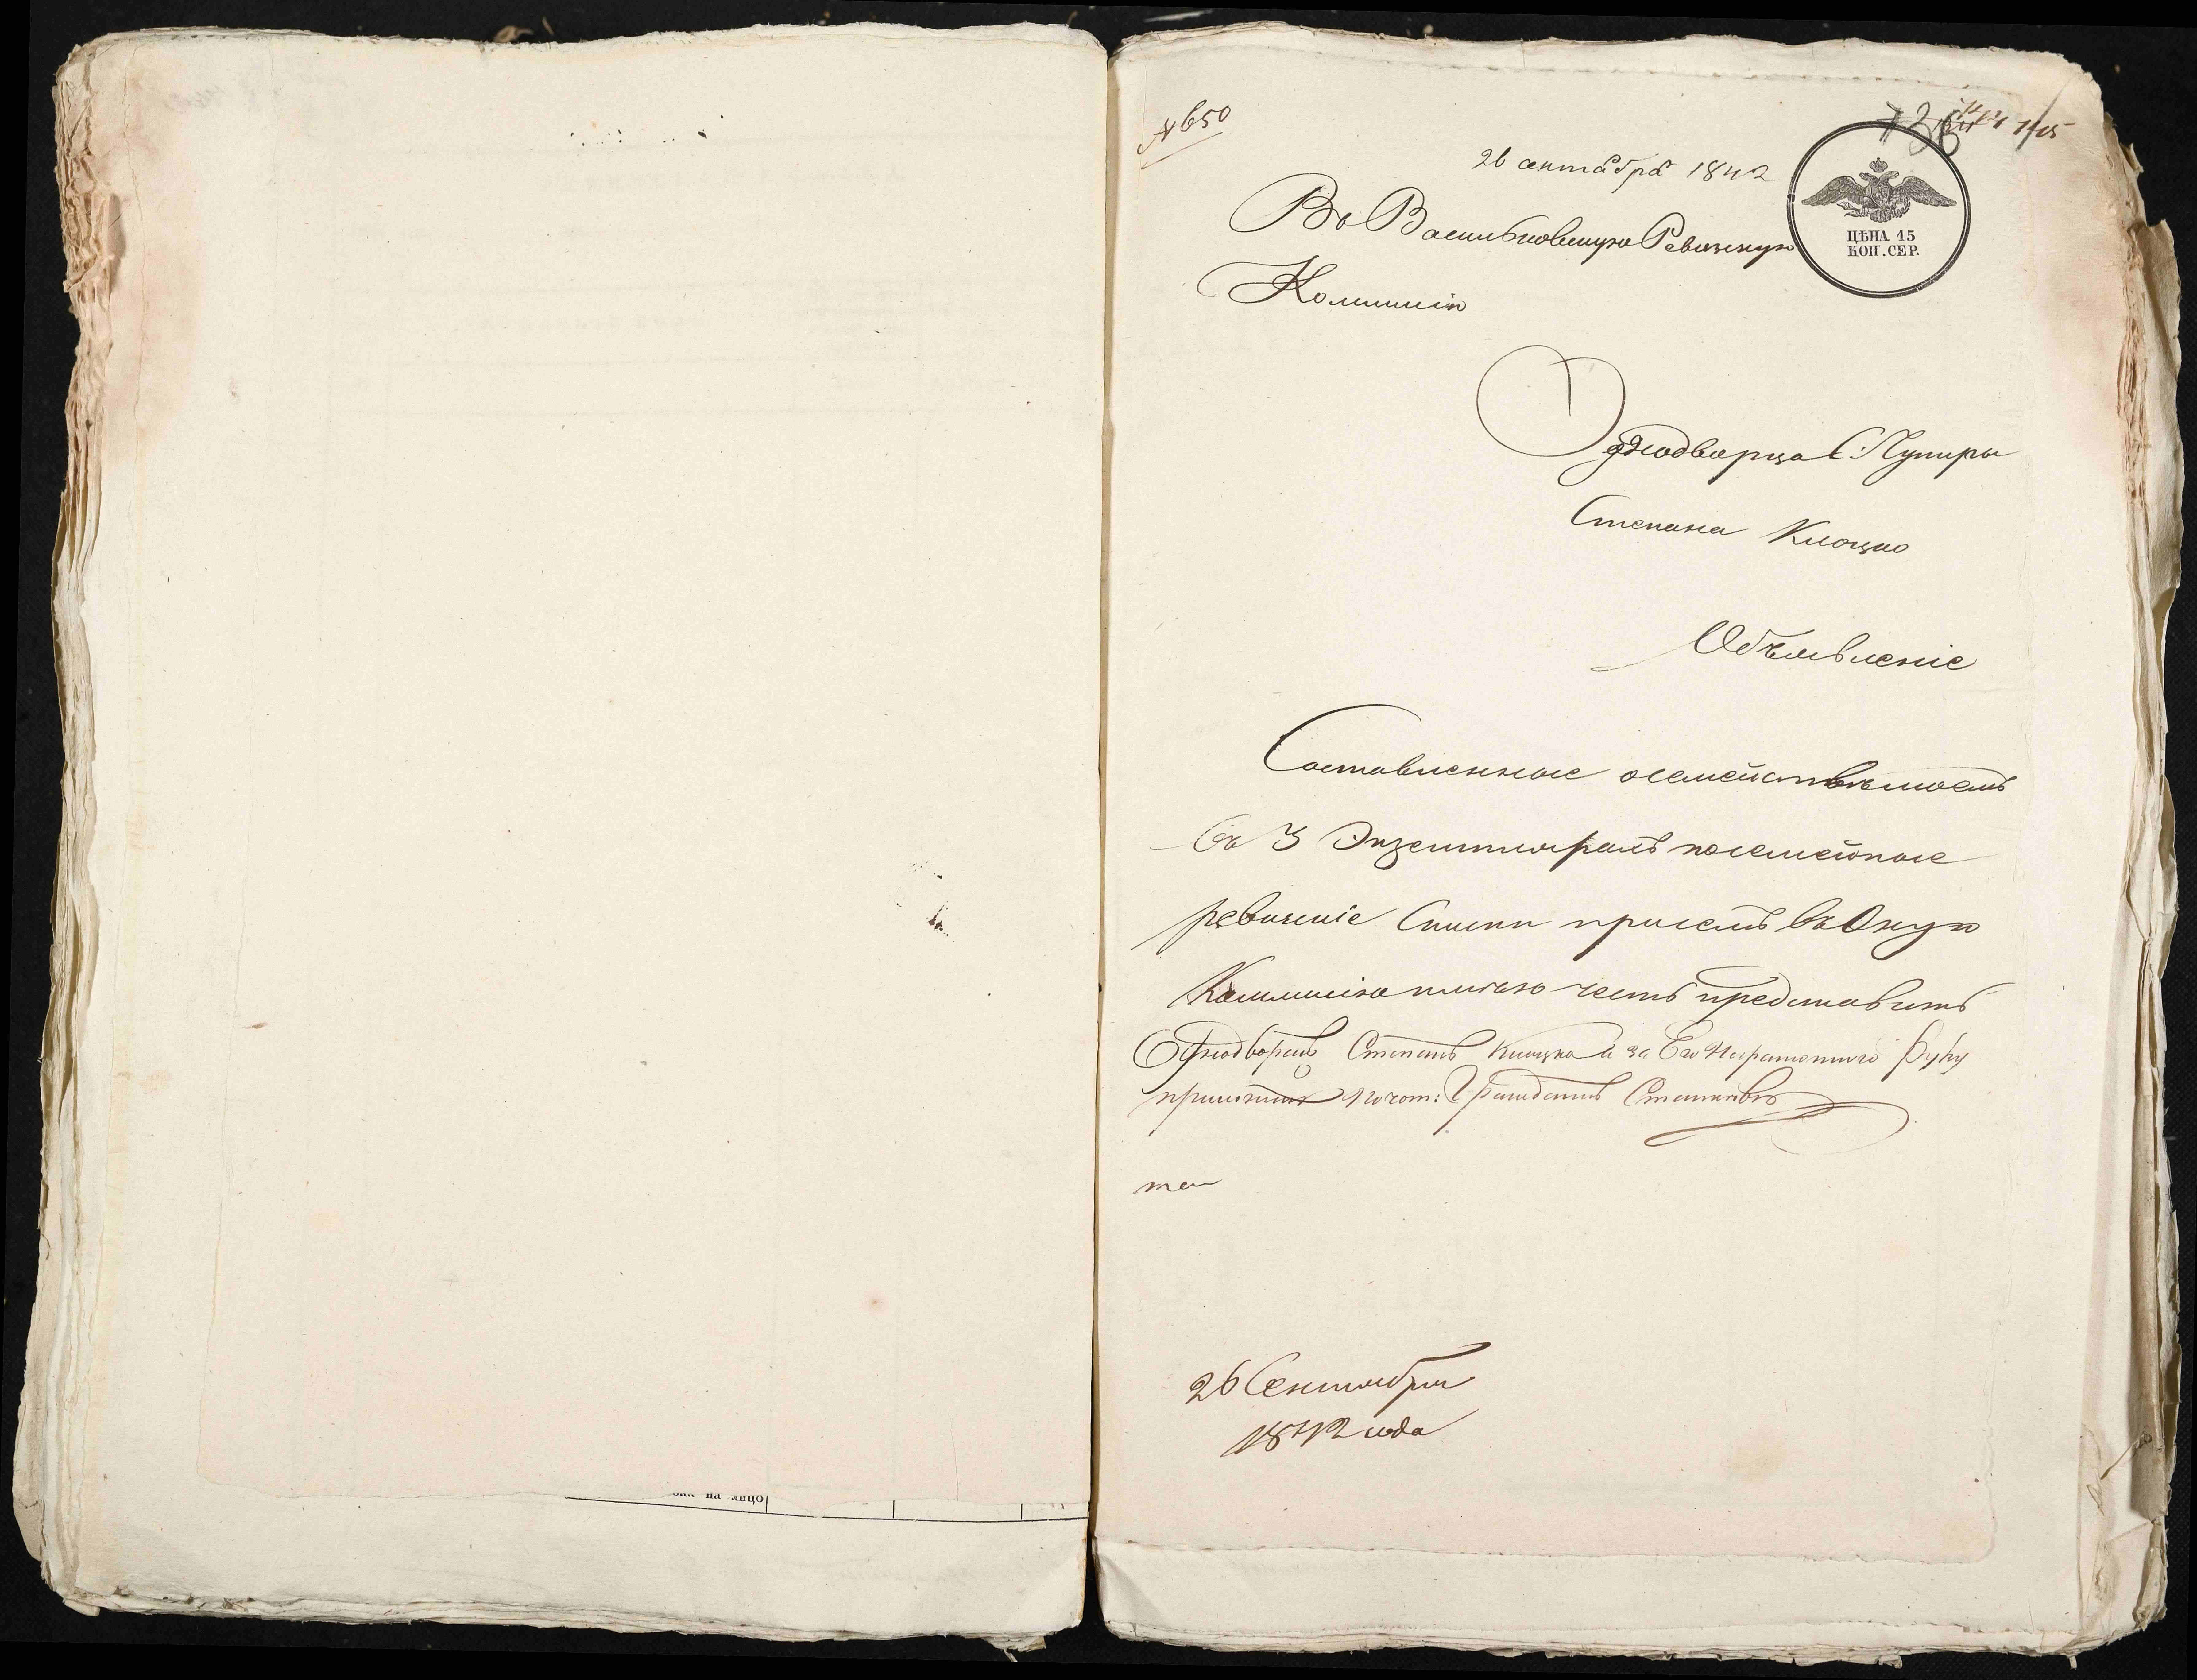 № 650
26 сентября 1842
ЦѢНА 15
КОП. СЕР.
Въ Васильковскую Ревизскую
Коммисію
Однодворца С. Пупиры
Степана Клоцко
Объявленіе
Составленные о семействѣ моемъ
въ 3 Экземплярахъ посемейные
ревизскіе Списки присемъ въ Оную
Коммисію имѣю честь представить
Однодворецъ Степанъ Клоцко а за Его Неграмотного Руку
приложилъ Почот: Гражданинъ
26 Сентября
1842 года
на лицо